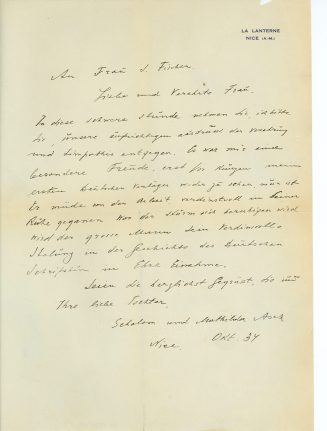 LA LANTERNE
NICE (A.-M.)
An Frau S. Fischer.
Liebe und Verehrte Frau.
In diese schwere stunde nehmen Sie, ich bitte
Sie, unsere aufrichtigen ausdruck der Verehrung
und Simpathie entgegen. Es war mir eine
besondere Freude, erst for kurzen meinen
ersten Deutschen Verleger wider zu sehen,
Er müde von der Arbeit in seiner
Ruhe gegangen. Wen der sturm sich beruhigen wird
wird der grosse Mann sein
Stelung in der Geschichte des Deutschen
in Ehre Einahme.
Seien die herzlichst gegrüst, Sie und
Ihre liebe Tochter
Schalom und Mathilda Asch
Nice. Okt. 34